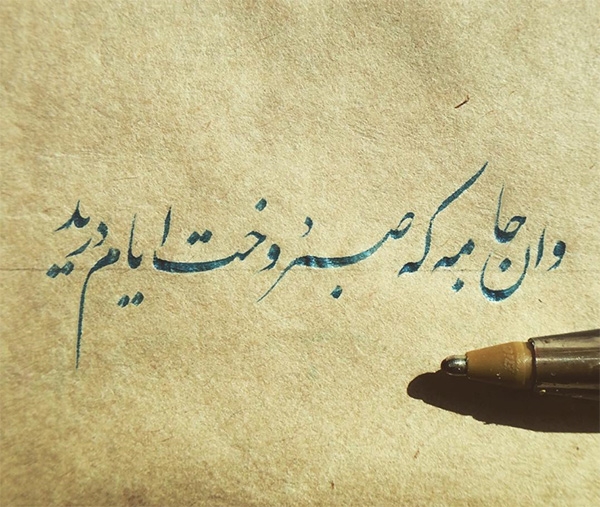 وان جامه که صبر دوخت ایام درید